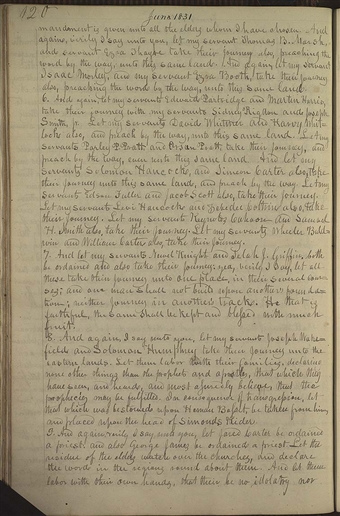 120
June 1831.
mandment is given unto all the elders whom I have chosen. And
again, verily I say unto you, let my servant Thomas B. Marsh,
and servant Ezra Thayre take their journey also, preaching the
word by the way, unto this same land. And again, let my servant
Isaac Morley, and my servant Ezra Booth, take their journey
also, preaching the word by the way, unto this same land.
let my servants Edward Partridge and Martin Harris,
take their journey with my servants Sidney Rigdon and Joseph
Smith, jr. Let my servants David Whitmer and Harvy Whit-
lock also, and preach by the way, unto this same land. Let my
servants Parley P. Pratt and Orson Pratt take their journey, and
preach by the way, even unto this same land. And let my
servants Solomon Hancock, and Simeon Carter also, take
their journey unto this same land, and preach by the way. Let my
servants Edson Fuller and Jacob Scott also, take their journey.
Let my servants Levi Hancock and Zebedee Coltrin also, take
their journey. Let my servant Reynolds Cahoon and Samuel
H. Smith also, take their journey. Let my servants Wheeler Bald-
win and William Carter also, take their journey.
7. And let my servants Newel Knight and Selah J. Griffin both
be ordained and also take their journey: yea, verily I say, let all
these take their journey unto one place, in their several cours-
es; and one man shall not build upon another's founda-
tion; neither journey in another's track. He that is
faithful, the same shall be kept and blessed with much
fruit.
8. And again, I say unto you, let my servant Joseph Wake-
field and Solomon Humphrey take their journey unto the
eastern lands. Let them labor with their families, declaring
none other things than the prophets and apostles, that which they
have seen, and heard, and most assuredly believe, that the
prophecies may be fulfilled. In consequence of transgression, let
that which was bestowed upon Heman Basset, be taken from him,
and placed upon the head of Simonds Rider.
9. And again verily, I say unto you, let Jared Carter be ordained
a priest, and also George James be ordained a priest. Let the
residue of the elders watch over the churches, and declare
the word in the regions round about them. And let them
labor with their own hands, that there be no idolatry nor